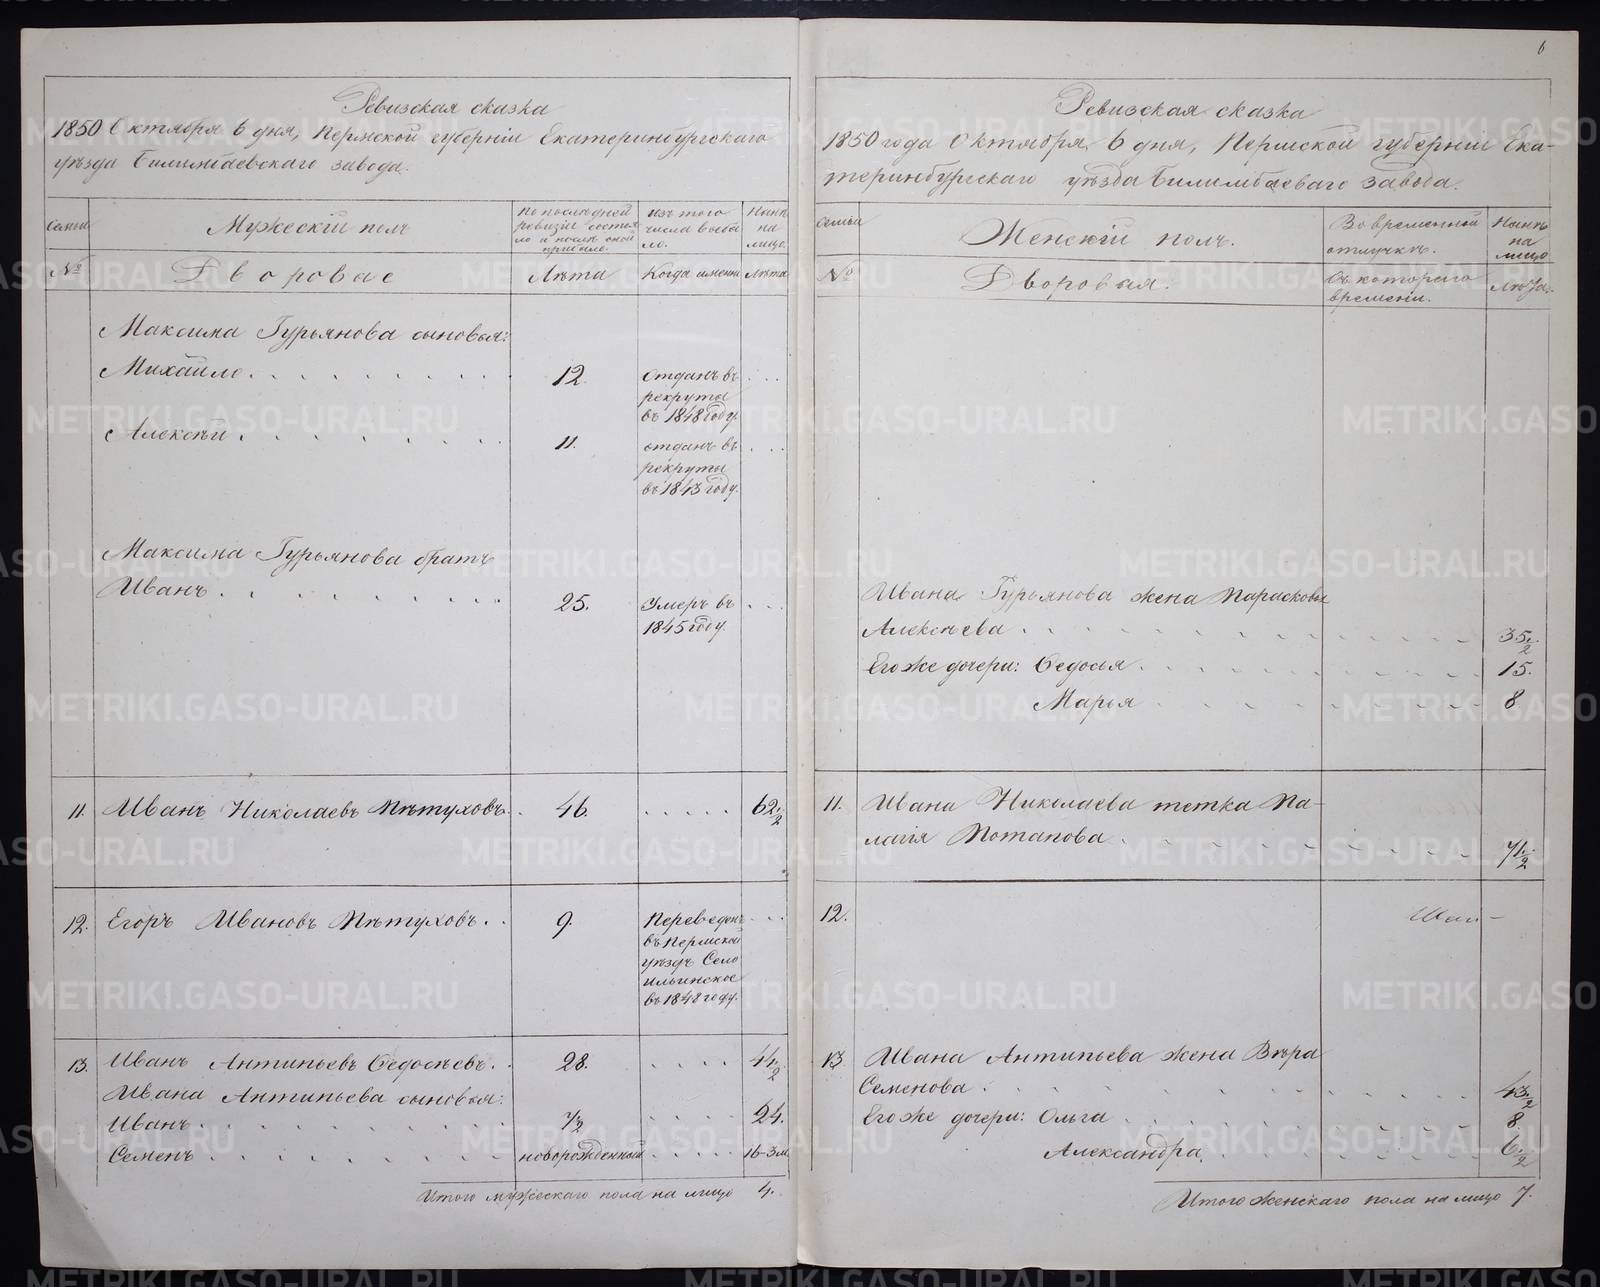 6
Ревизская сказка
1850 Октября 6 дня, Пермской губерніи Екатеринбургскаго
уѣзда Билимбаевскаго завода.
Семьи
Мужескій полъ
по послѣдней ревизіи состояло и послѣ оной прибыло.
изъ того числа выбыло.
Нынѣ на лицо.
№
Дворовые
Лѣта
Когда именно
Лѣта
Максима Гурьянова сыновья:
Михайло . . . . . . . . 12. отданъ въ . . .
рекруты
въ 1848 году.
Алексѣй . . . . . . . . 11. отданъ въ . . .
рекруты
въ 1843 году.
Максима Гурьянова братъ
Иванъ . . . . . . . . 25. Умеръ въ . . .
1845 году.
11. Иванъ Николаевъ Пѣтуховъ . . 46. . . . . . 62 1/2
12. Егоръ Ивановъ Пѣтуховъ . . 9. Переведенъ . . .
въ Пермской
уѣздъ Село
Ильинское
въ 1848 году.
13. Иванъ Антипьевъ Ѳедосѣевъ . . 28. . . . . 44 1/2
Ивана Антипьева сыновья:
Иванъ . . . . . . . . 7/2 . . . . . 24.
Семенъ . . . . . . . . новорожденный . . . . 16-3 м.
Итого мужескаго пола на лицо 4.
Ревизская сказка
1850 года Октября 6 дня, Пермской губерніи Ека-
теринбургскаго уѣзда Билимбаеваго завода.
Семьи
Женскій полъ.
Во временной отлучкѣ.
Нынѣ на лицо
№
Дворовыя.
Съ котораго времени.
Лѣта.
Ивана Гурьянова жена Парасковья
Алексѣева . . . . . . . . 35 1/2
Его же дочери: Ѳедосья . . . . . . . . 15.
Марья . . . . . . . . 8
11. Ивана Николаева тетка Па-
лагія Потапова . . . . . . . . 71 1/2
12.
13. Ивана Антипьева жена Вѣра
Семенова . . . . . . . . 43 1/2
Его же дочери: Ольга . . . . . . . . 8.
Александра . . . . . . . . 6 1/2
Итого женскаго пола на лицо 7.
METRIKI.GASO-URAL.RU